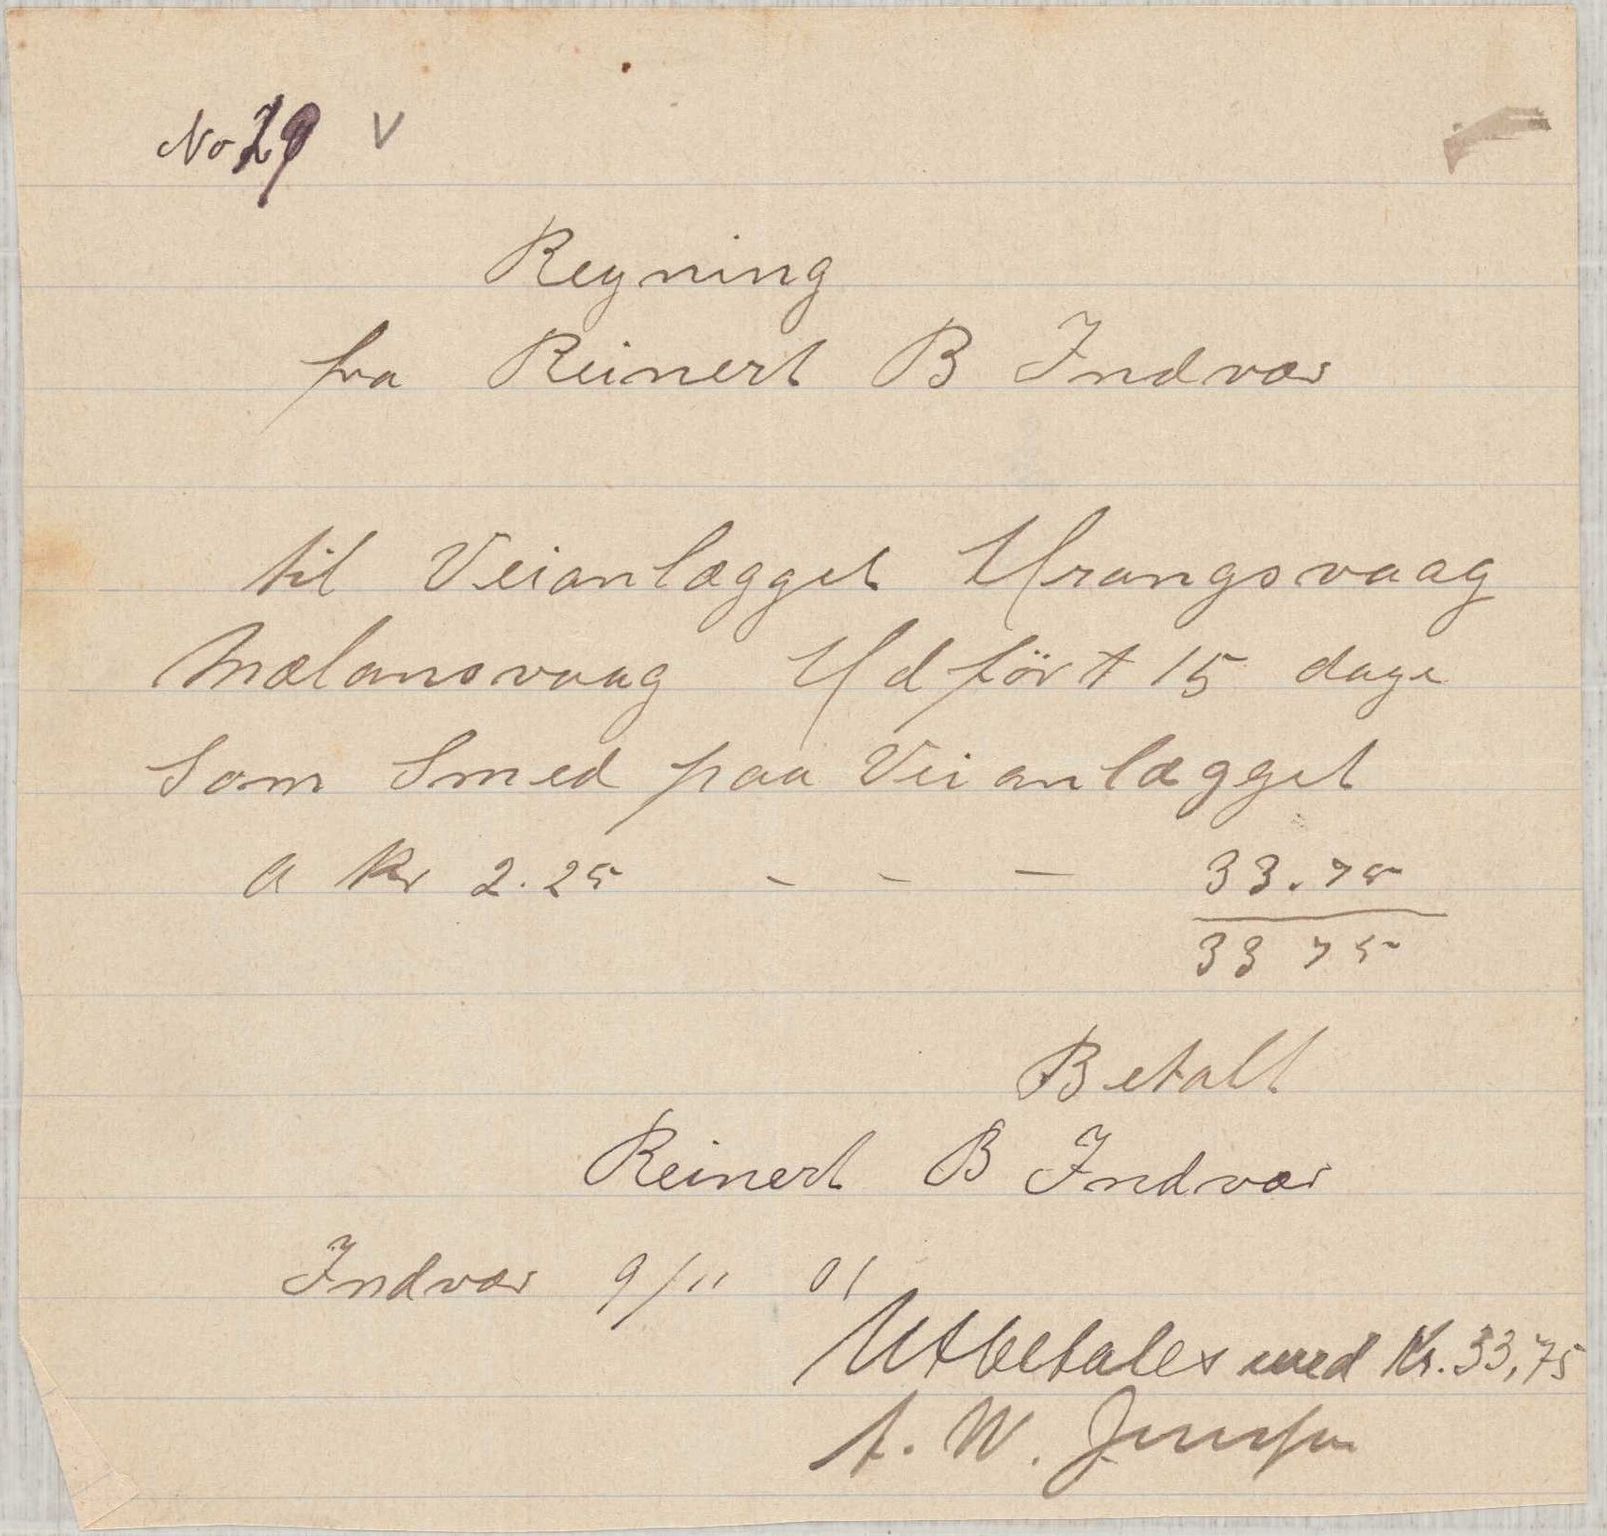 No 29 V
Regning
fra Reinert B Indvær
til Veianlægget Urangsvaag
Mælansvaag Udført 15 dage
som Smed paa Veianlægget
a Kr 2.25 - - - 33.75
33 75
Betalt
Reinert B Indvær
Indvær 9/11 01
Utbetales med Kr. 33,75
A. W. Jensen